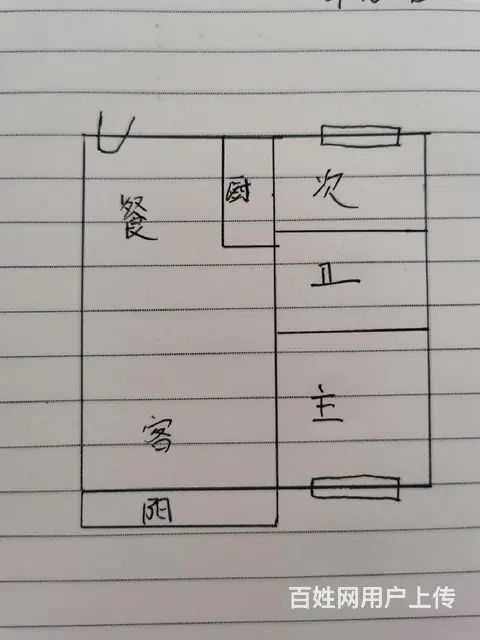 厨
次
餐
卫
主
客
阳
百姓网用户上传